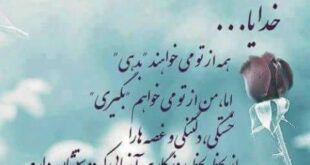 خدایا...
همه از تو می خواهند "بدهی"
اما، من از تو می خواهم "بگیری"
خستگی، دلتنگی و غصه ها را